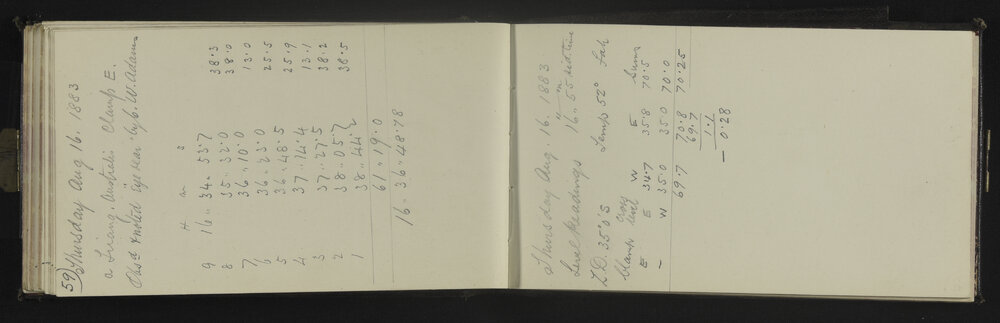 59) Thursday Aug 16. 1883
α Triang. Australis Clamp E.
Obsd & noted eye & ear by C. W. Adams
H m s
9 16 „ 34 „ 53.7 38.3
8 35 „ 32.0 38.0
7 36 „ 10.0 13.0
6 36 „ 23.0 25.5
5 36 „ 48.5 25.9
4 37 „ 14.4 13.1
3 37 „ 27.5 38.2
2 38 „ 05.7 38.5
1 38 „ 44.2
61 „ 19.0
16 „ 36 „ 48.78
Thursday Aug. 16. 1883
Level Readings 16 H „ 55 m sid time
Z.D. 35° 0' S Temp 52° Fah
Clamp cross level W E Sums
E E 34.7 35.8 70.5
— W 35.0 35.0 70.0
69.7 70.8 70.25
69.7
1.1
— 0.28